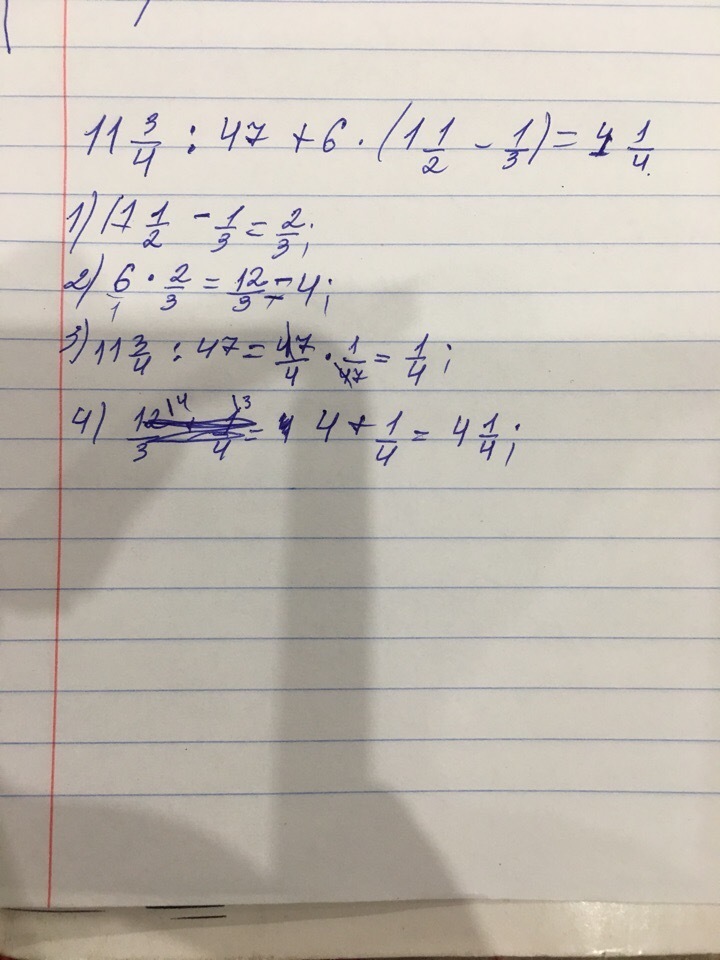 11 3/4 : 47 + 6 · (1 1/2 - 1/3) = 4 1/4.
1) (1 1/2 - 1/3 = 2/3;
2) 6/1 · 2/3 = 12/3 = 4;
3) 11 3/4 : 47 = 47/4 · 1/47 = 1/4;
4) = 4 + 1/4 = 4 1/4;